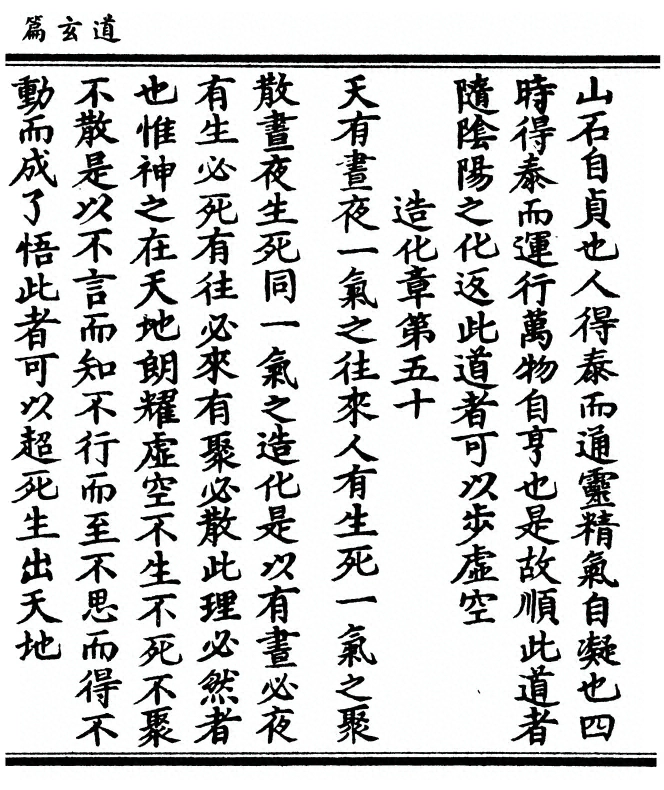 道玄篇
山石自貞也人得泰而通靈精氣自凝也四
時得泰而運行萬物自亨也是故順此道者
隨陰陽之化返此道者可以步虛空
造化章第五十
天有晝夜一氣之往來人有生死一氣之聚
散晝夜生死同一氣之造化是以有晝必夜
有生必死有往必來有聚必散此理必然者
也惟神之在天地朗耀虛空不生不死不聚
不散是以不言而知不行而至不思而得不
動而成了悟此者可以超死生出天地